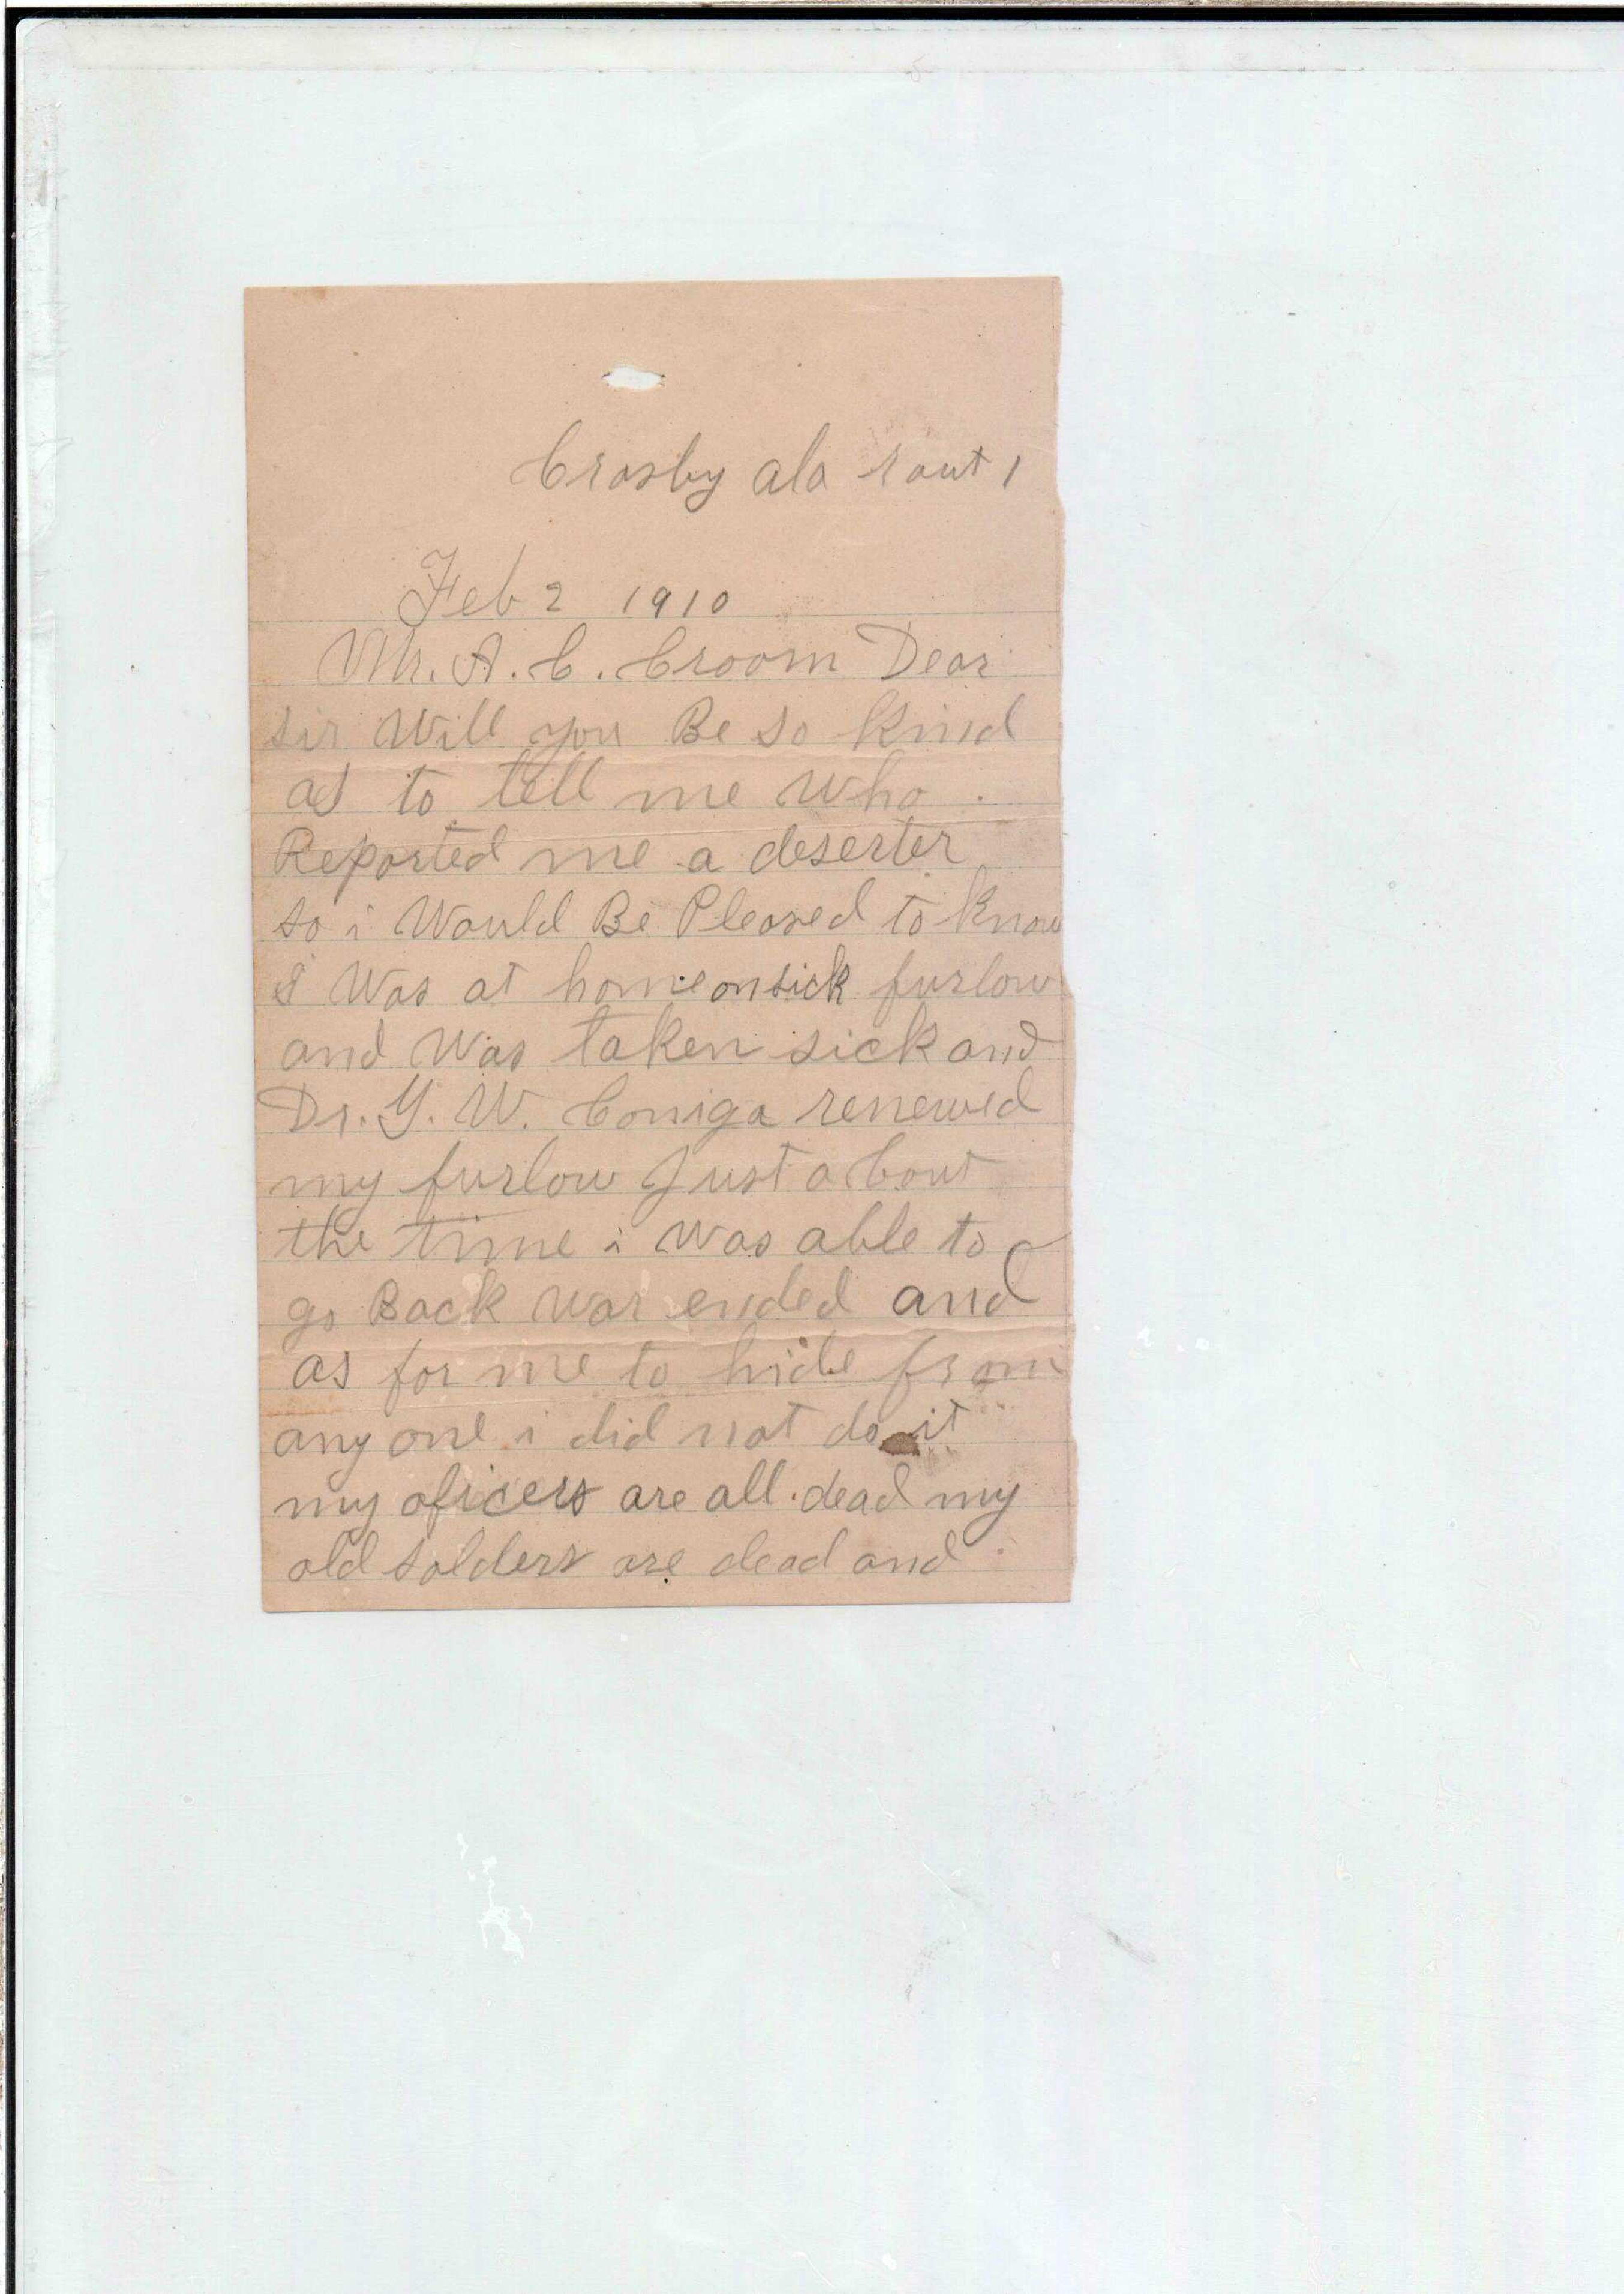 Crosby ala rout 1
Feb 2 1910
Mr. A. C. Croom Dear
sir Will you Be so Kind
as to tell me Who
Reported me a deserter
so i Would Be Pleased to Know
I Was at home on sick furlow
and Was taken sick and
Dr. Y. W. Coniga renewed
my furlow Just about
the time i Was able to
go Back War ended and
as for me to hide from
any one i did not do it
my oficers are all dead my
old solders are dead and